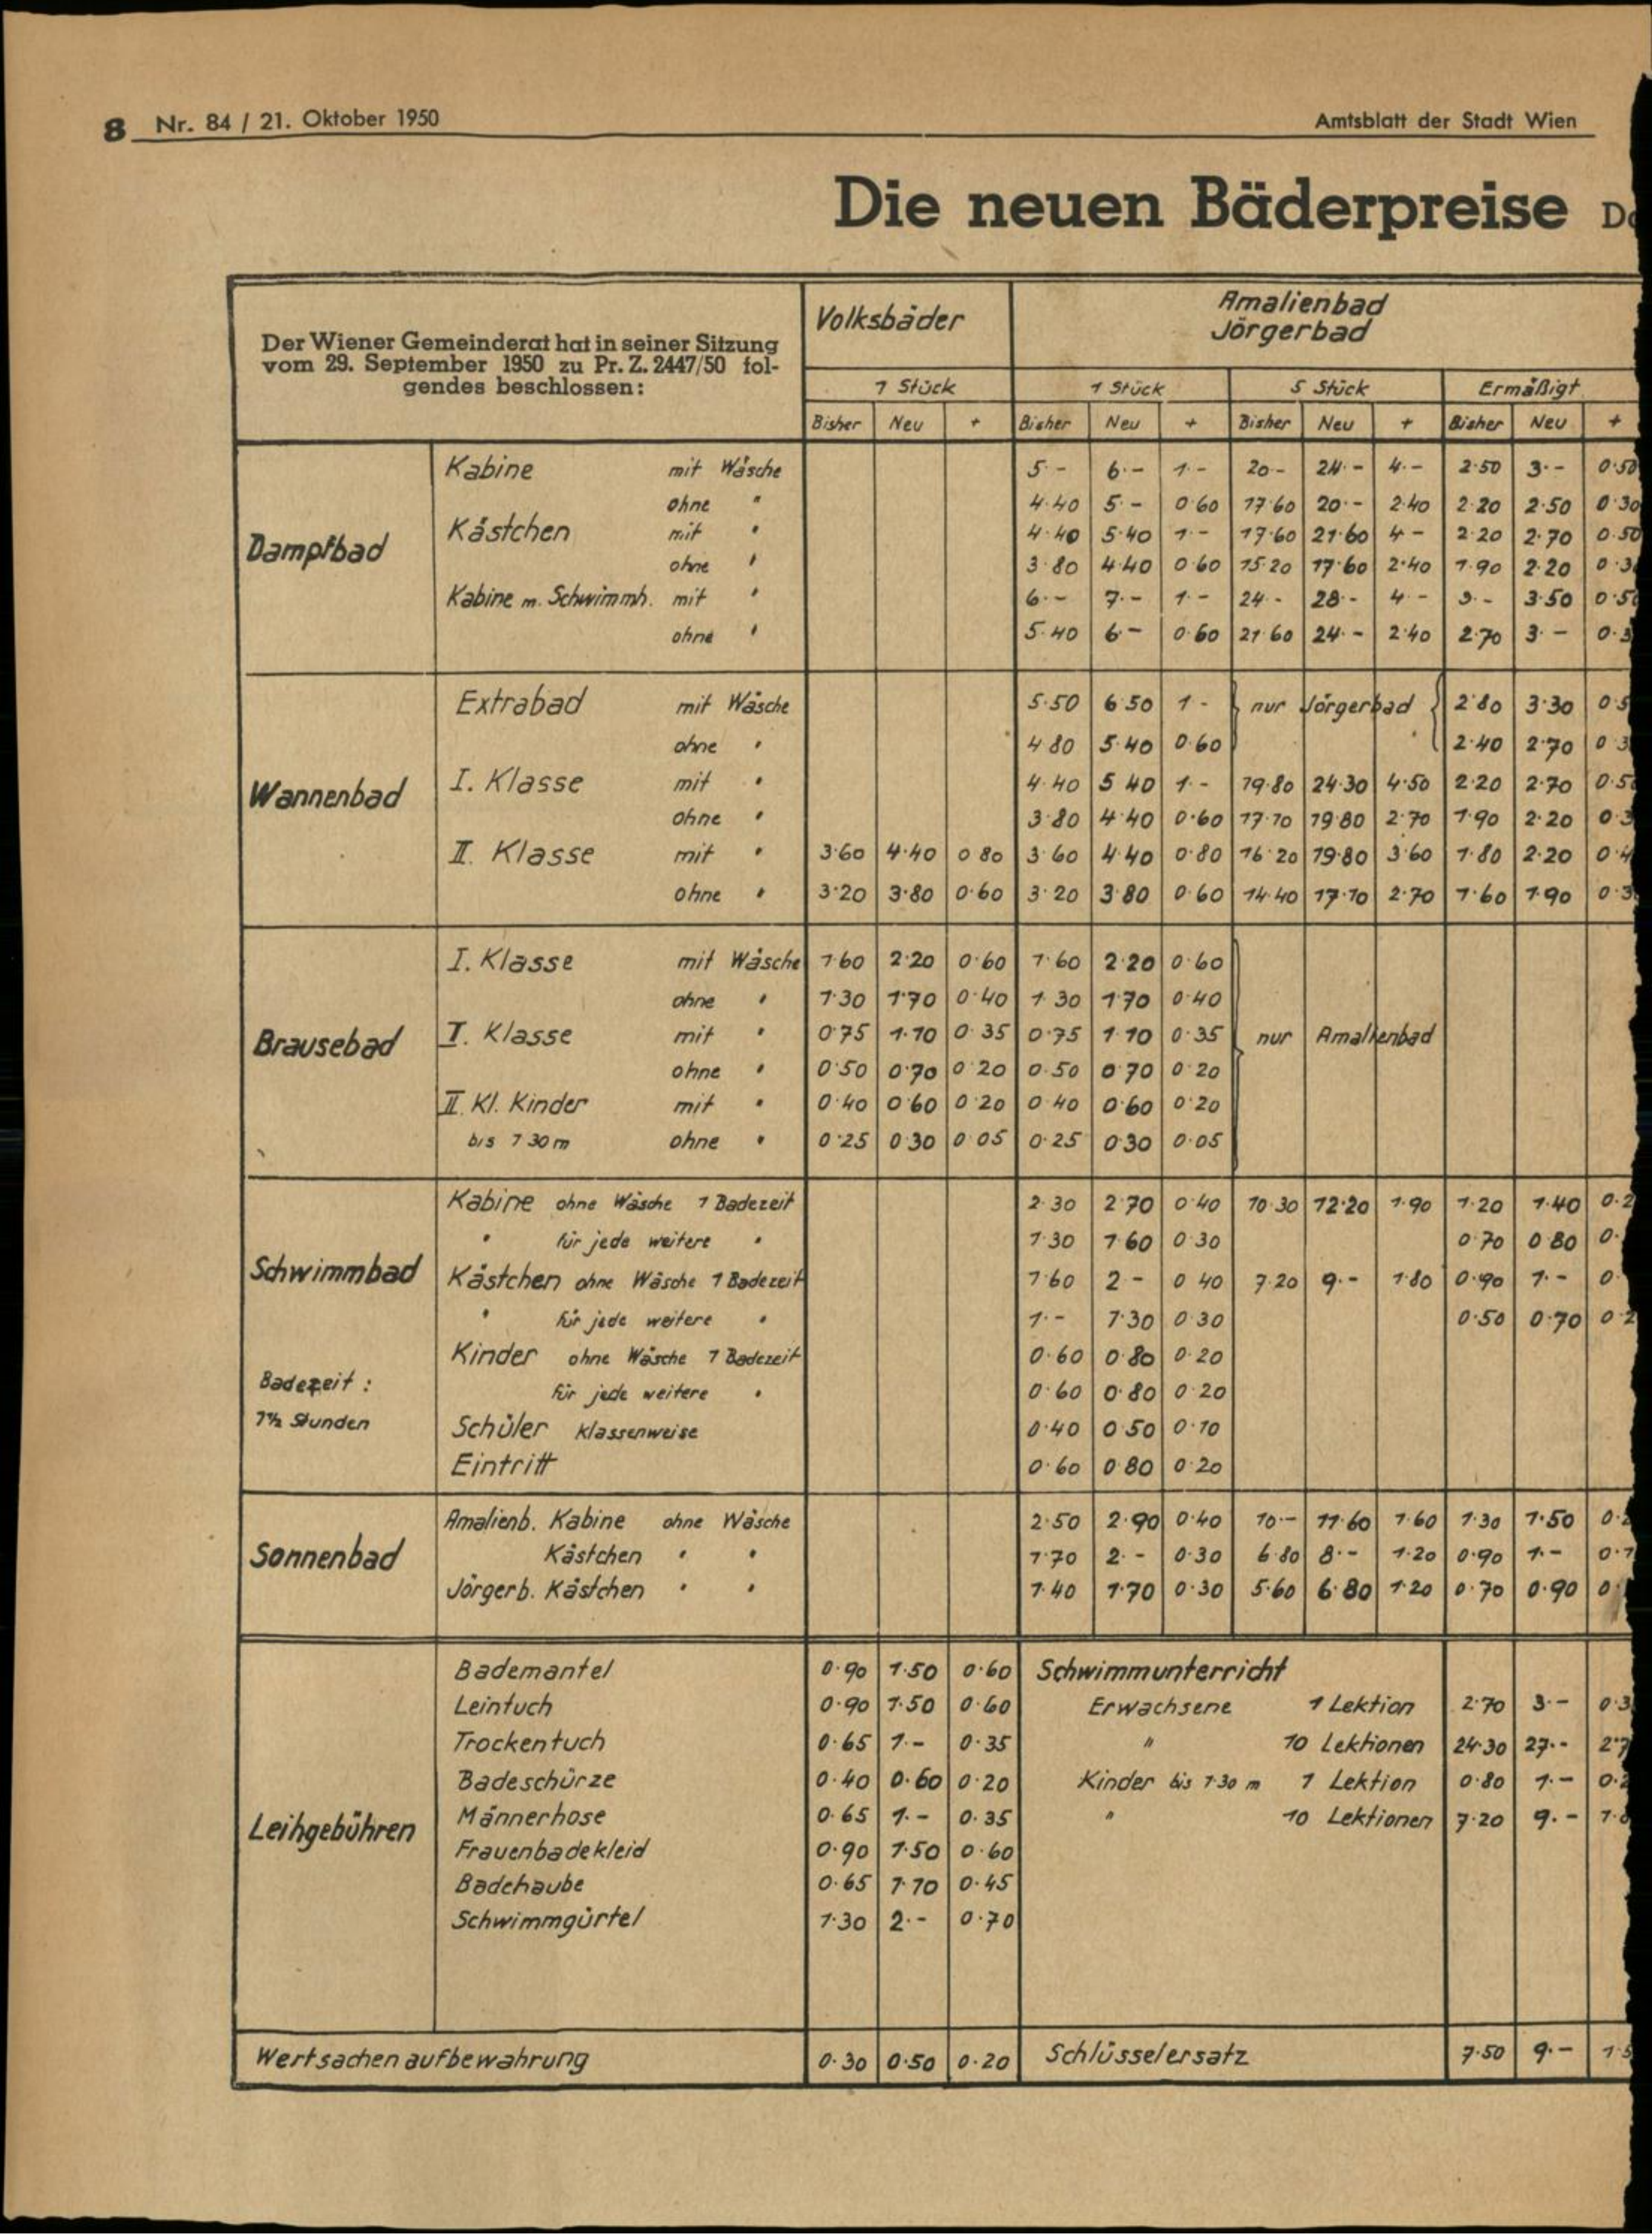 8 Nr. 84 / 21. Oktober 1950 Amtsblatt der Stadt Wien
Die neuen Bäderpreise
Der Wiener Gemeinderat hat in seiner Sitzung
vom 29. September 1950 zu Pr. Z. 2447/50 fol-
gendes beschlossen:
Volksbäder
Amalienbad
Jörgerbad
1 Stück 1 Stück 5 Stück Ermäßigt
Bisher Neu + Bisher Neu + Bisher Neu + Bisher Neu +
Dampfbad
Kabine mit Wäsche 5·- 6·- 1·- 20·- 24·- 4·- 2·50 3·- 0·50
ohne " 4·40 5·- 0·60 17·60 20·- 2·40 2·20 2·50 0·30
Kästchen mit " 4·40 5·40 1·- 17·60 21·60 4·- 2·20 2·70 0·50
ohne " 3·80 4·40 0·60 15·20 17·60 2·40 1·90 2·20
Kabine m. Schwimmh. mit " 6·- 7·- 1·- 24·- 28·- 4·- 3·- 3·50
ohne " 5·40 6·- 0·60 21·60 24·- 2·40 2·70 3·-
Wannenbad
Extrabad mit Wäsche 5·50 6·50 1·- nur Jörgerbad 2·80 3·30
ohne " 4·80 5·40 0·60 2·40 2·70
I. Klasse mit " 4·40 5·40 1·- 19·80 24·30 4·50 2·20 2·70
ohne " 3·80 4·40 0·60 17·10 19·80 2·70 1·90 2·20
II. Klasse mit " 3·60 4·40 0·80 3·60 4·40 0·80 16·20 19·80 3·60 1·80 2·20
ohne " 3·20 3·80 0·60 3·20 3·80 0·60 14·40 17·10 2·70 1·60 1·90
Brausebad
I. Klasse mit Wäsche 1·60 2·20 0·60 1·60 2·20 0·60
ohne " 1·30 1·70 0·40 1·30 1·70 0·40
I. Klasse mit " 0·75 1·10 0·35 0·75 1·10 0·35 nur Amalienbad
ohne " 0·50 0·70 0·20 0·50 0·70 0·20
II. Kl. Kinder mit " 0·40 0·60 0·20 0·40 0·60 0·20
bis 1·30 m ohne " 0·25 0·30 0·05 0·25 0·30 0·05
Schwimmbad
Badezeit:
1½ Stunden
Kabine ohne Wäsche 1 Badezeit 2·30 2·70 0·40 10·30 12·20 1·90 1·20 1·40
" für jede weitere " 1·30 1·60 0·30 0·70 0·80
Kästchen ohne Wäsche 1 Badezeit 1·60 2·- 0·40 7·20 9·- 1·80 0·90 1·-
" für jede weitere " 1·- 1·30 0·30 0·50 0·70
Kinder ohne Wäsche 1 Badezeit 0·60 0·80 0·20
für jede weitere " 0·60 0·80 0·20
Schüler klassenweise 0·40 0·50 0·10
Eintritt 0·60 0·80 0·20
Sonnenbad
Amalienb. Kabine ohne Wäsche 2·50 2·90 0·40 10·- 11·60 1·60 1·30 1·50
Kästchen " " 1·70 2·- 0·30 6·80 8·- 1·20 0·90 1·-
Jörgerb. Kästchen " " 1·40 1·70 0·30 5·60 6·80 1·20 0·70 0·90
Leihgebühren
Bademantel 0·90 1·50 0·60 Schwimmunterricht
Leintuch 0·90 1·50 0·60 Erwachsene 1 Lektion 2·70 3·-
Trockentuch 0·65 1·- 0·35 " 10 Lektionen 24·30 27·-
Badeschürze 0·40 0·60 0·20 Kinder bis 1·30 m 1 Lektion 0·80 1·-
Männerhose 0·65 1·- 0·35 " 10 Lektionen 7·20 9·-
Frauenbadekleid 0·90 1·50 0·60
Badehaube 0·65 1·10 0·45
Schwimmgürtel 1·30 2·- 0·70
Wertsachenaufbewahrung 0·30 0·50 0·20 Schlüsselersatz 7·50 9·-